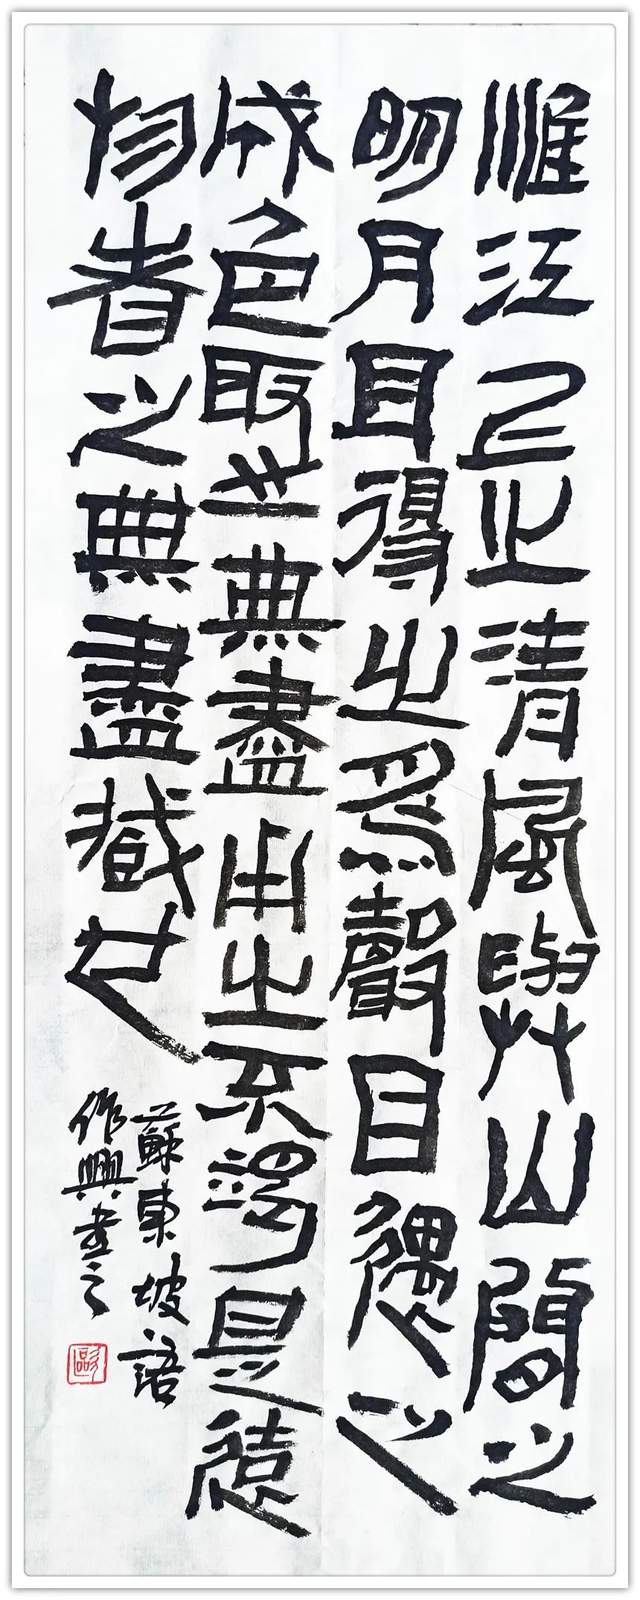 惟江上之清風與山間之
明月耳得之為聲目遇之
成色取之無盡用之不竭是造
物者之無盡藏也
蘇東坡語
作興書之
歐